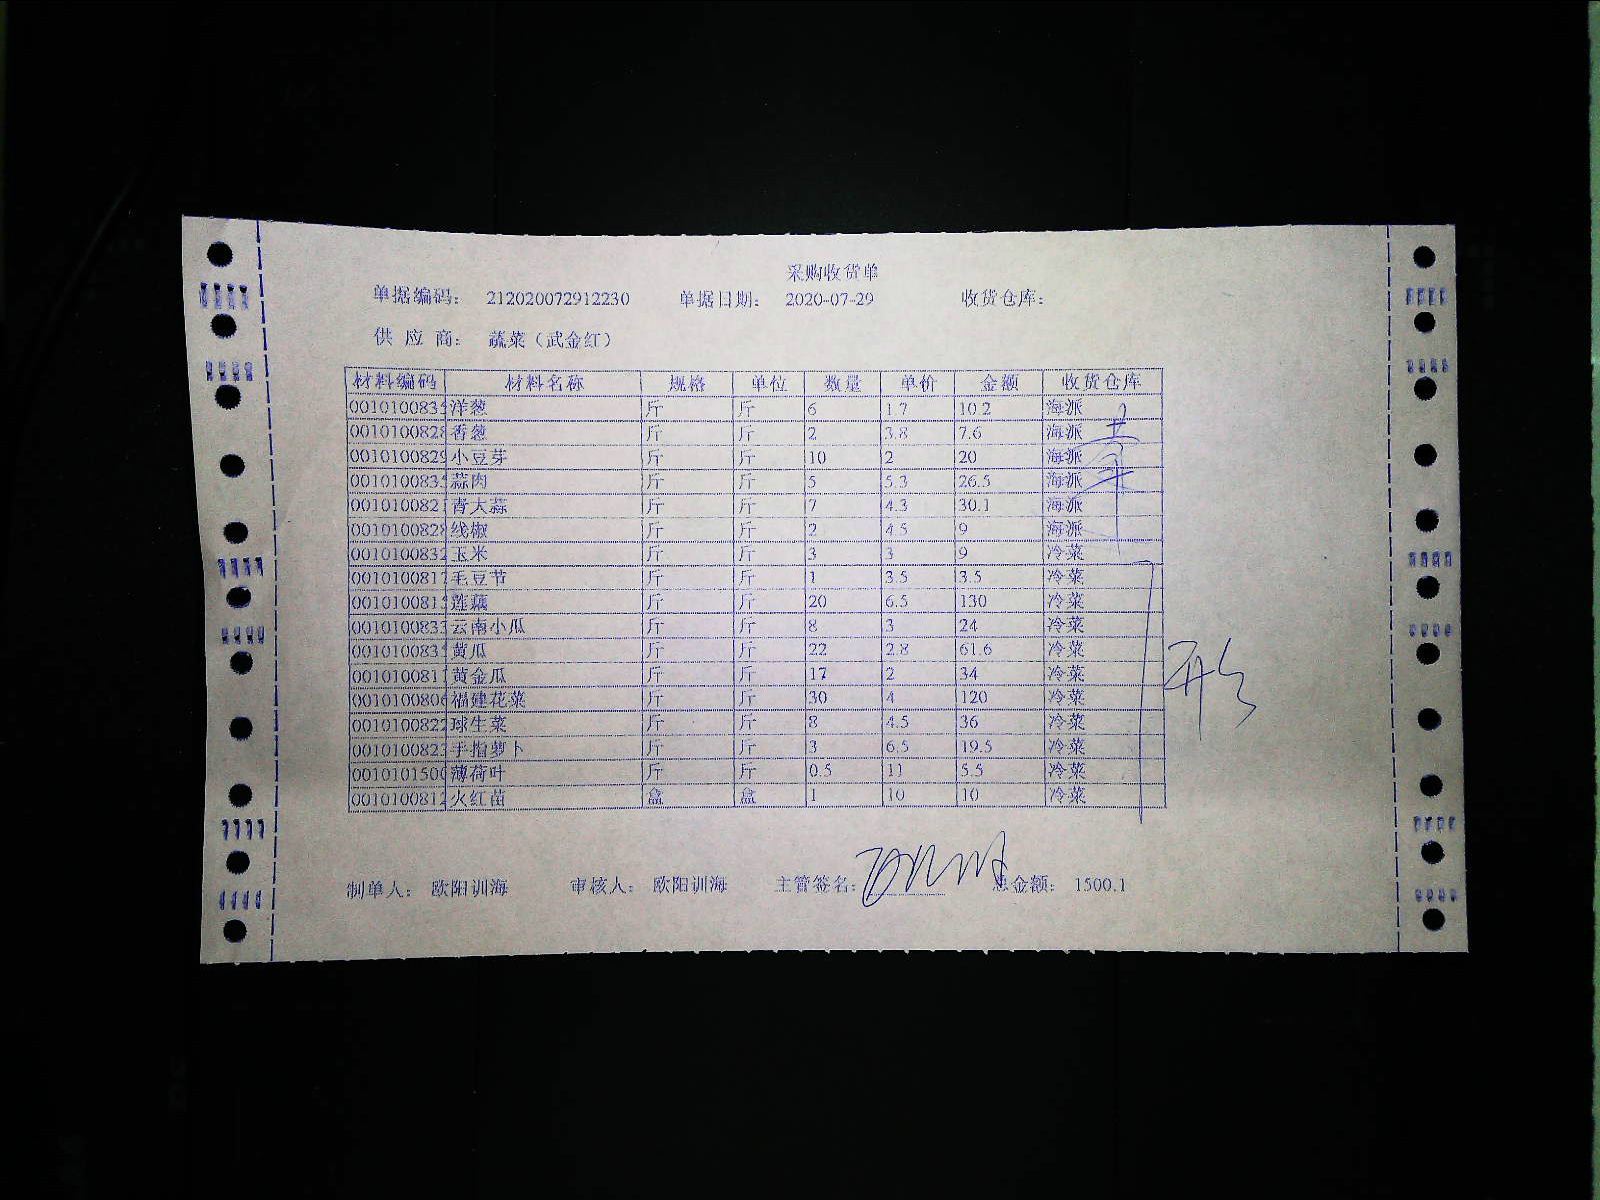 采购收货单
单据编码： 212020072912230 单据日期： 2020-07-29 收货仓库：
供 应 商： 蔬菜（武金红）
材料编码 材料名称 规格 单位 数量 单价 金额 收货仓库
001010083 洋葱 斤 斤 6 1.7 10.2 海派
001010082 香葱 斤 斤 2 3.8 7.6 海派
001010082 小豆芽 斤 斤 10 2 20 海派
001010083 蒜肉 斤 斤 5 5.3 26.5 海派
001010082 青大蒜 斤 斤 7 4.3 30.1 海派
001010082 线椒 斤 斤 2 4.5 9 海派
001010083 玉米 斤 斤 3 3 9 冷菜
001010081 毛豆节 斤 斤 1 3.5 3.5 冷菜
001010081 莲藕 斤 斤 20 6.5 130 冷菜
001010083 云南小瓜 斤 斤 8 3 24 冷菜
001010083 黄瓜 斤 斤 22 2.8 61.6 冷菜
001010081 黄金瓜 斤 斤 17 2 34 冷菜
001010080 福建花菜 斤 斤 30 4 120 冷菜
001010082 球生菜 斤 斤 8 4.5 36 冷菜
001010082 手指萝卜 斤 斤 3 6.5 19.5 冷菜
001010150 薄荷叶 斤 斤 0.5 11 5.5 冷菜
001010081 火红苗 盒 盒 1 10 10 冷菜
制单人： 欧阳训海 审核人： 欧阳训海 主管签名： 总金额： 1500.1